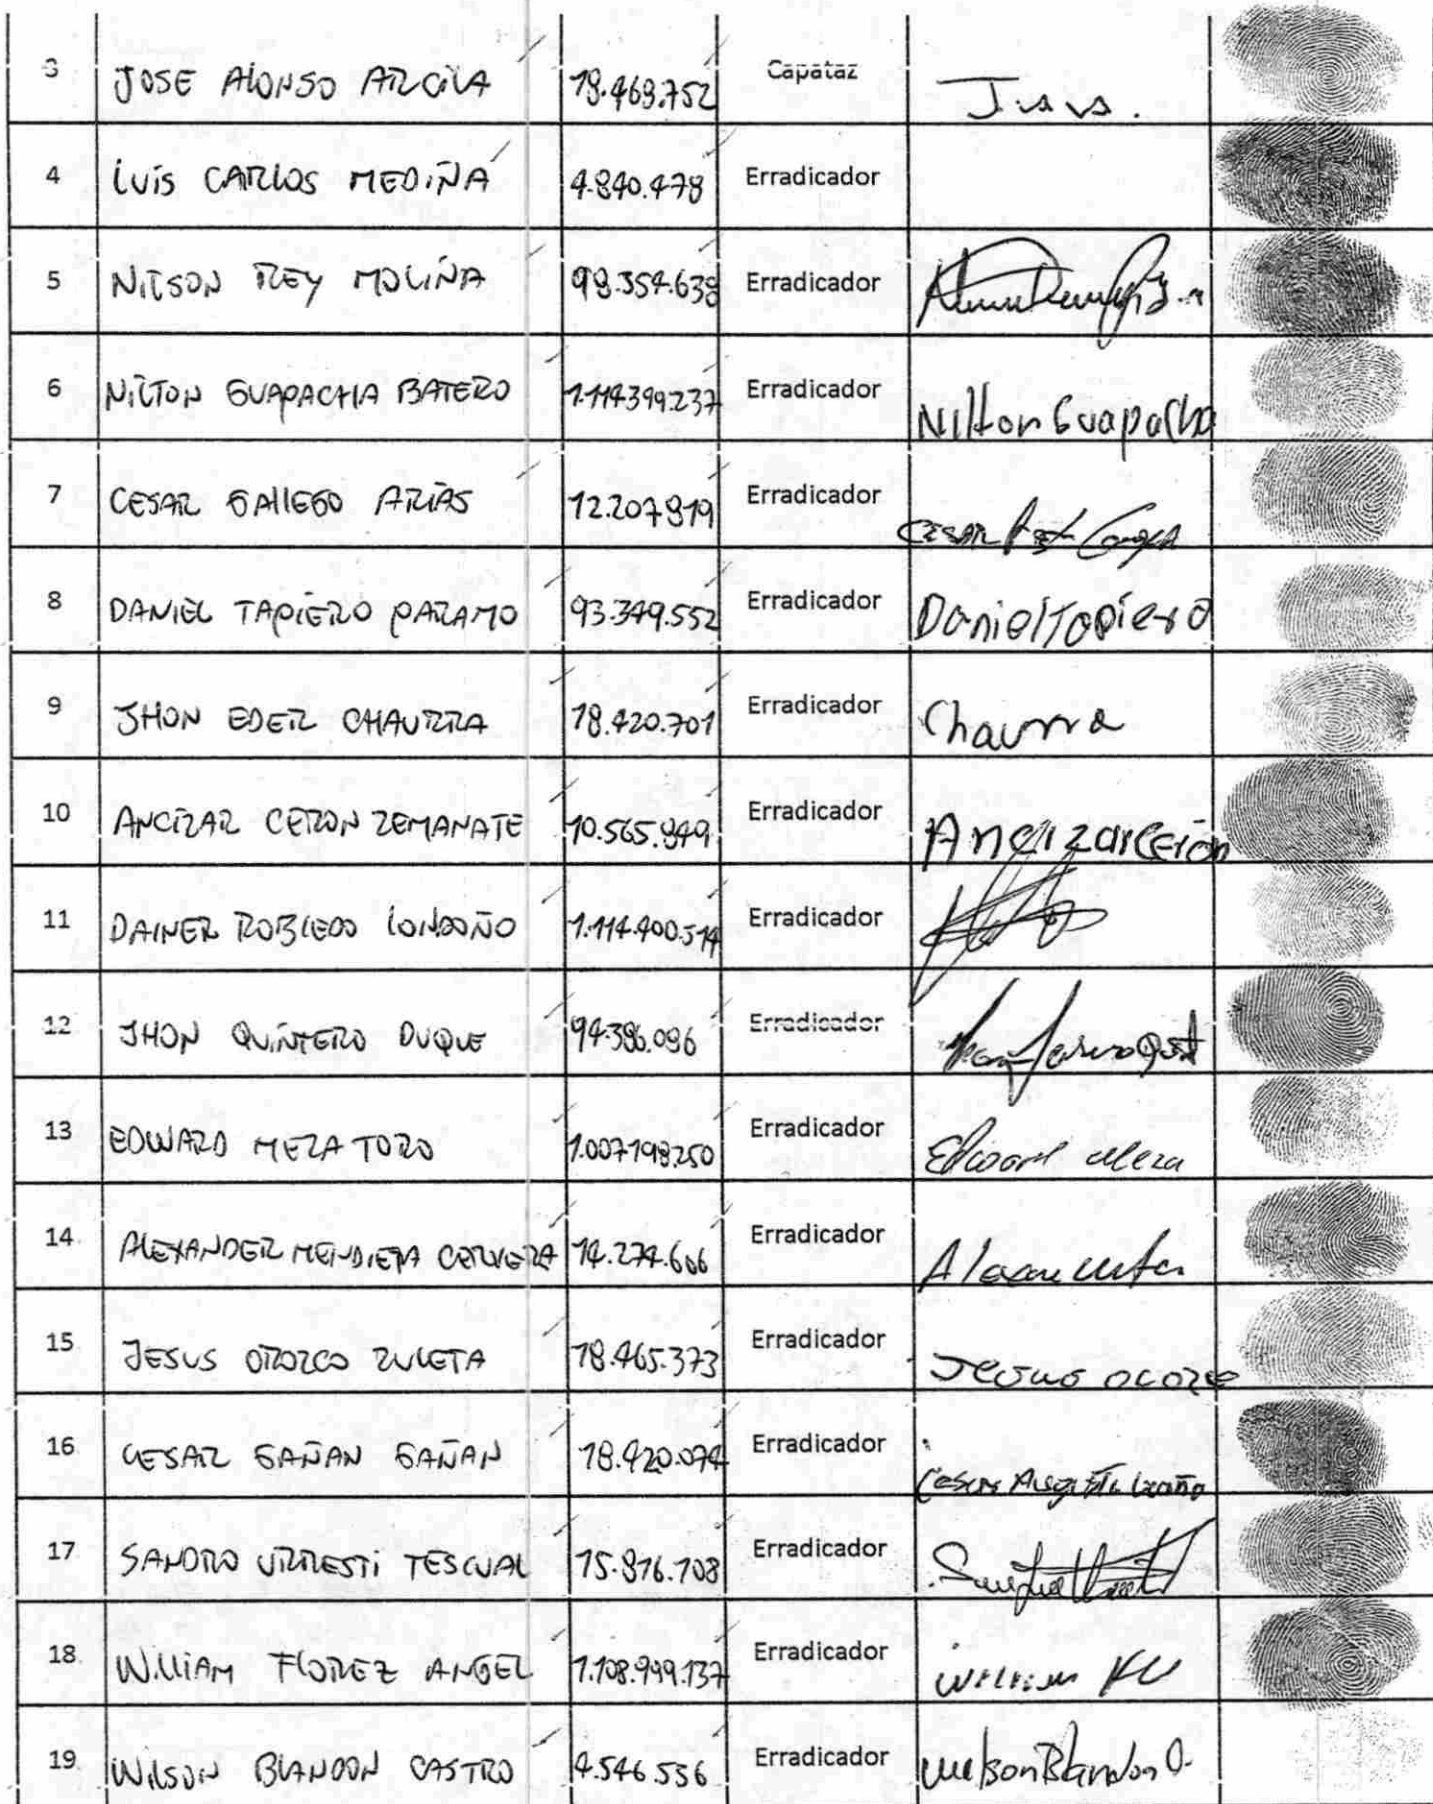 3 JOSE ALONSO ARCILA 18.469.752 Capataz
4 LUIS CARLOS MEDIÑA 4.840.478 Erradicador
5 NILSON REY MOLIÑA 98.354.638 Erradicador
6 NILTON GUAPACHA BATERO 1.114.399.237 Erradicador Nilton Guapacha
7 CESAR GALLEGO ARIAS 12.207.819 Erradicador CESAR
8 DANIEL TAPIERO PARAMO 93.349.552 Erradicador Daniel Tapiero
9 JHON EDER CHAURRA 18.420.701 Erradicador Chaurra
10 ANCIZAR CERON ZEMANATE 10.565.849 Erradicador Ancizar Ceron
11 DAINER ROBLEDO LONDOÑO 1.114.400.514 Erradicador
12 JHON QUINTERO DUQUE 94.386.096 Erradicador
13 EDWARD MEZA TORO 1.007.198.250 Erradicador Edward Meza
14 ALEXANDER MENDIETA CERVERA 14.274.606 Erradicador
15 JESUS OROZCO ZULETA 18.465.373 Erradicador Jesus
16 CESAR GAÑAN GAÑAN 18.420.074 Erradicador Cesar Augusto
17 SANDRO URRESTI TESCUAL 15.876.708 Erradicador
18 WILLIAM FLOREZ ANGEL 1.108.999.137 Erradicador William
19 WILSON BLANDON CASTRO 4.546.556 Erradicador Wilson Blandon